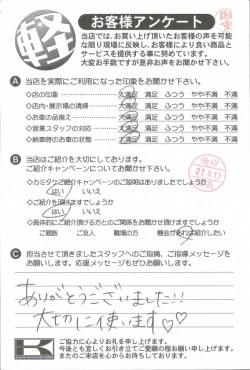 軽
お客様アンケート
当店では、お買い上げ頂いたお客様の声を可能
な限り現場に反映し、お客様により良い商品と
サービスを提供する事に努めています。
大変お手数ですが是非お声をお聞かせ下さい。
A 当店を実際にご利用になった印象をお聞かせ下さい。
◇店の印象 大満足 満足 ふつう やや不満 不満
◇店内・展示場の清掃 大満足 満足 ふつう やや不満 不満
◇お車の品揃え 大満足 満足 ふつう やや不満 不満
◇営業スタッフの対応 大満足 満足 ふつう やや不満 不満
◇納車時のお車の状態 大満足 満足 ふつう やや不満 不満
B 当店はご紹介を大切にしております。
ご紹介キャンペーンについてお聞かせ下さい。
◇カミタケご紹介キャンペーンのご説明はありましたでしょうか
はい いいえ
◇ご紹介を頂けますでしょうか
はい いいえ
◇具体的にご紹介頂ける方とのご関係をお聞かせ頂けますでしょうか
ご親族 ご友人 職場の方 機会があれば紹介したい
27.9.13
C 担当させて頂きましたスタッフへのご指摘、ご指導メッセージを
お願いします。応援メッセージもぜひお願いします。
ありがとうございました!!
大切に使います♡♡
K
ご協力に心よりお礼を申し上げます。
今後とも宜しくお引き立てご愛顧の程お願い申し上げます。
またのご来店を心からお待ちしております。